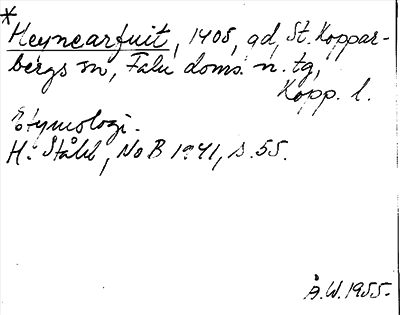 *
Heynearfuit, 1405, gd, St. Koppar-
bergs sn, Falu doms. n. tg,
Kopp. l.
Etymologi.
H. Ståhl, NoB 1941, s. 55.
Å.W. 1955.